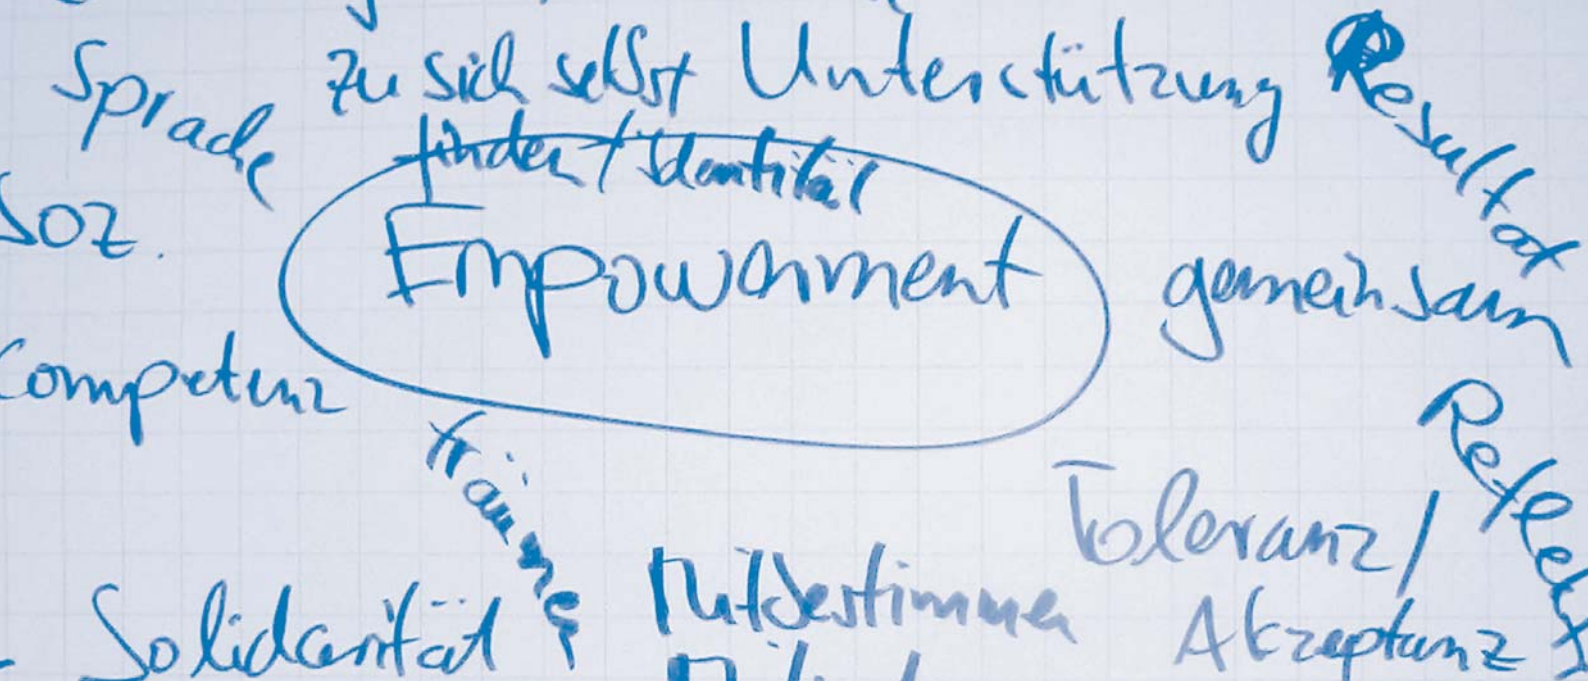 Sprache
zu sich selbst
finden / Identität
Unterstützung
Resultat
soz.
Competenz
Empowerment
gemeinsam
Träume
Toleranz /
Akzeptanz
Solidarität
Mitbestimmen